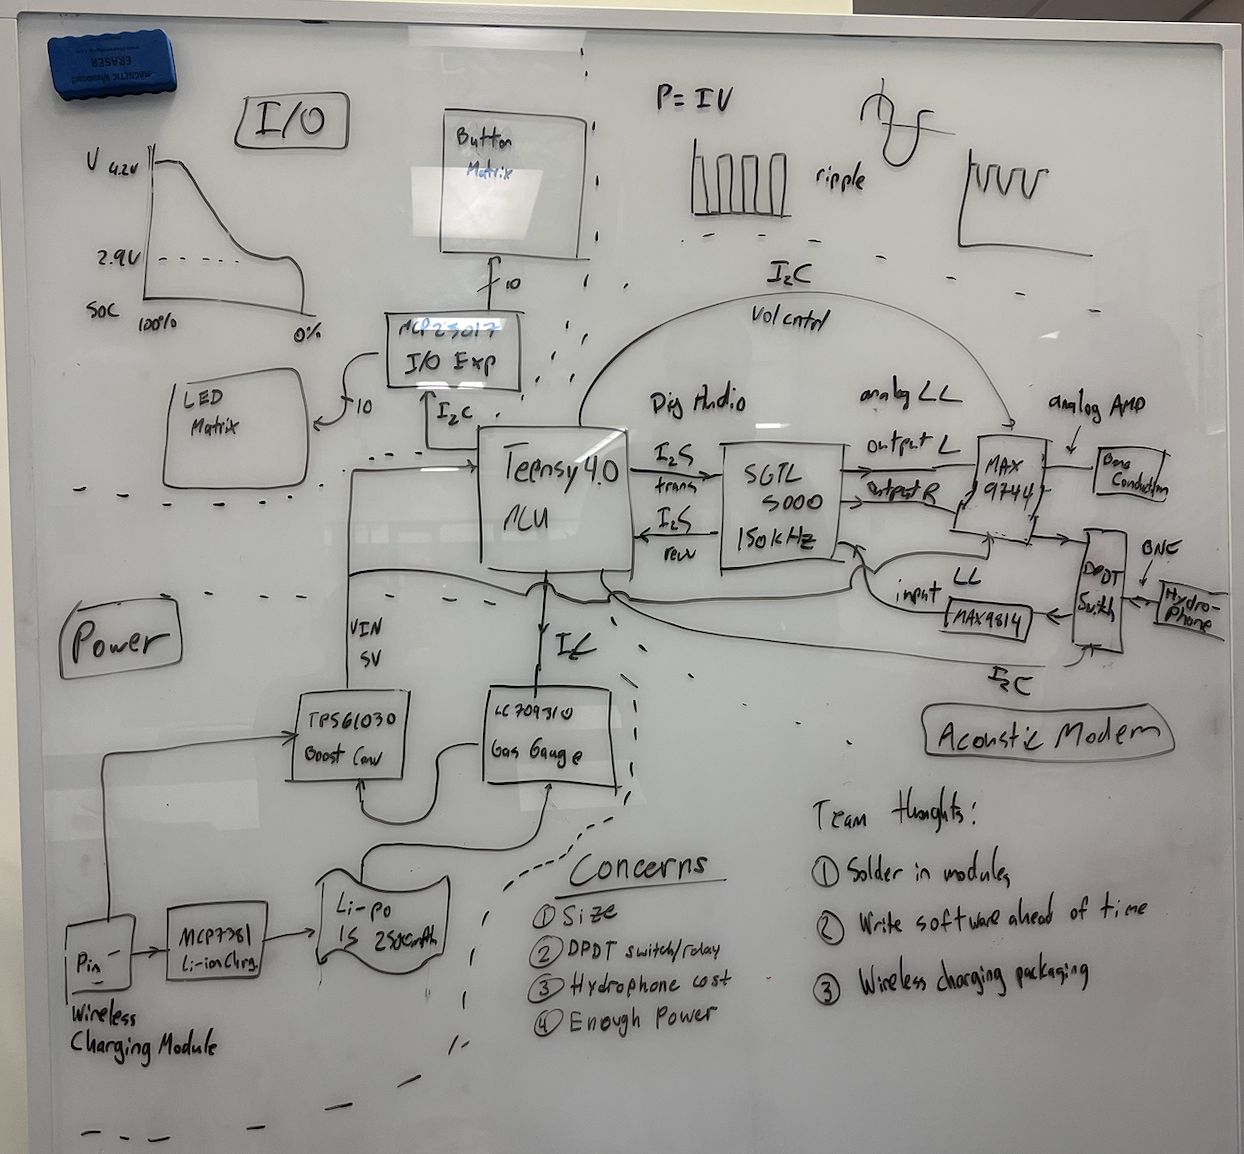 ERASER
MAGNETIC Whiteboard
I/O
V 4.2V
2.9V
SOC
100%
0%
Button
Matrix
10
MCP23017
I/O Exp
I2C
10
LED
Matrix
P = IV
ripple
I2C
Vol cntrl
Dig Audio
analog LL
analog AMP
Teensy 4.0
MCU
I2S
trans
I2S
recv
SGTL
5000
150kHz
output L
output R
MAX
9744
Bone
Conduction
DPDT
Switch
BNC
Hydro-
Phone
LL
input
MAX9814
I2C
Acoustic Modem
Power
VIN
5V
I2C
TPS61030
Boost Conv
LC709310
Gas Gauge
Pin
Wireless
Charging Module
MCP7381
Li-ion Chrg
Li-po
1S 2500mAh
Concerns
① Size
② DPDT switch/relay
③ Hydrophone cost
④ Enough Power
Team thoughts:
① Solder in modules
② Write software ahead of time
③ Wireless charging packaging